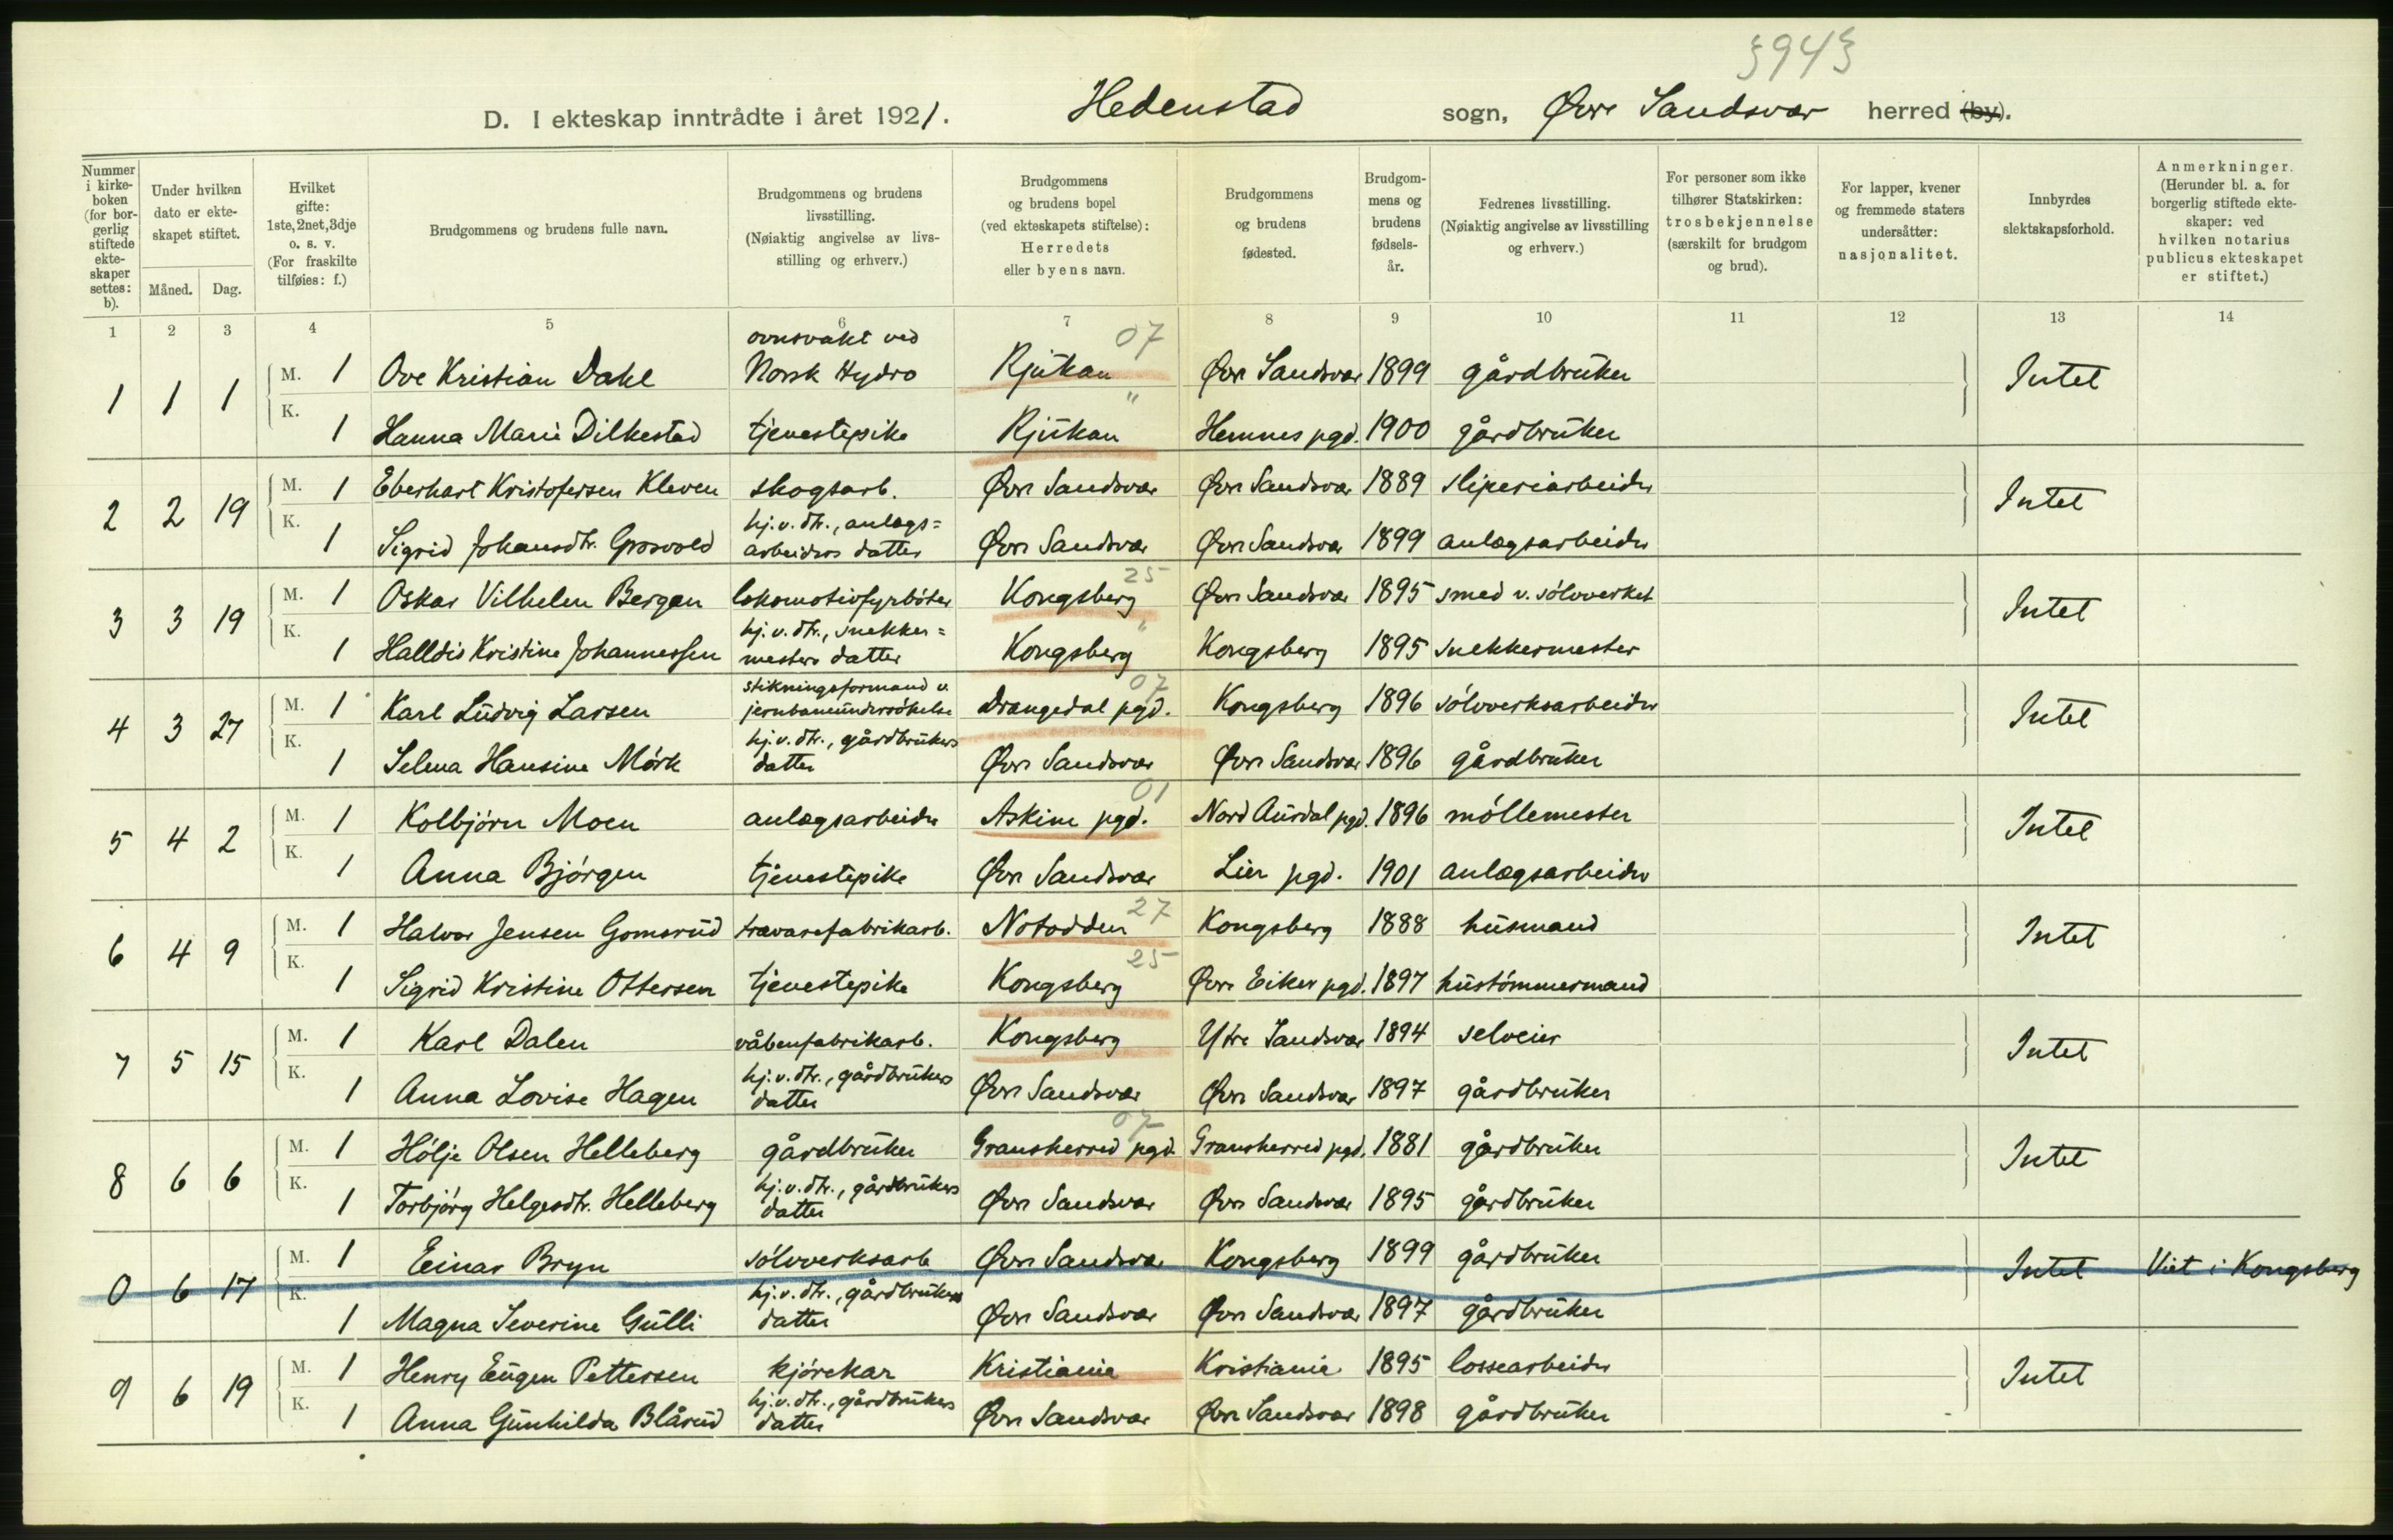 §94§
D. I ekteskap inntrådte i året 1921. Hedenstad sogn, Øvre Sandsvær herred (by).
Nummer i kirkeboken (for borgerlig stiftede ekteskaper settes: b).
Under hvilken dato er ekteskapet stiftet.
Måned. Dag.
Hvilket gifte: 1ste, 2net, 3dje o. s. v. (For fraskilte tilføies: f.)
Brudgommens og brudens fulle navn.
Brudgommens og brudens livsstilling. (Nøiaktig angivelse av livsstilling og erhverv.)
Brudgommens og brudens bopel (ved ekteskapets stiftelse): Herredets eller byens navn.
Brudgommens og brudens fødested.
Brudgommens og brudens fødselsår.
Fedrenes livsstilling. (Nøiaktig angivelse av livsstilling og erhverv.)
For personer som ikke tilhører Statskirken: trosbekjennelse (særskilt for brudgom og brud).
For lapper, kvener og fremmede staters undersåtter: nasjonalitet.
Innbyrdes slektskapsforhold.
Anmerkninger. (Herunder bl. a. for borgerlig stiftede ekteskaper: ved hvilken notarius publicus ekteskapet er stiftet.)
1 2 3 4 5 6 7 8 9 10 11 12 13 14
1 1 1 M. 1 Ove Kristian Dahl ovnsvakt ved Norsk Hydro Rjukan 07 Øvre Sandsvær 1899 gårdbruker Intet
K. 1 Hanna Marie Dilkestad tjenestepike Rjukan " Hemnes pgd. 1900 gårdbruker
2 2 19 M. 1 Eberhart Kristofersen Kleven skogsarb. Øvre Sandsvær Øvre Sandsvær 1889 sliperiarbeider Intet
K. 1 Sigrid Johansdtr. Grosvold hj.v. dtr., anlægsarbeiders datter Øvre Sandsvær Øvre Sandsvær 1899 anlægsarbeider
3 3 19 M. 1 Oskar Vilhelm Bergan lokomotivfyrbøter Kongsberg 25 Øvre Sandsvær 1895 smed v. sølvverket Intet
K. 1 Halldis Kristine Johannessen hj.v. dtr., snekkermesters datter Kongsberg " Kongsberg 1895 snekkermester
4 3 27 M. 1 Karl Ludvig Larsen stikningsformand v. jernbaneundersøkelse Drangedal pgd. 07 Kongsberg 1896 sølvverksarbeider Intet
K. 1 Selma Hansine Mørk hj.v. dtr., gårdbrukers datter Øvre Sandsvær Øvre Sandsvær 1896 gårdbruker
5 4 2 M. 1 Kolbjørn Moen anlægsarbeider Askim pgd. 01 Nord Aurdal pgd. 1896 møllemester Intet
K. 1 Anna Bjørgen tjenestepike Øvre Sandsvær Lier pgd. 1901 anlægsarbeider
6 4 9 M. 1 Halvor Jensen Gomsrud trævarefabrikarb. Notodden 27 Kongsberg 1888 husmand Intet
K. 1 Sigrid Kristine Ottersen tjenestepike Kongsberg 25 Øvre Eiker pgd. 1897 hustømmermand
7 5 15 M. 1 Karl Dalen våbenfabrikarb. Kongsberg Ytre Sandsvær 1894 selveier Intet
K. 1 Anna Lovise Hagen hj.v. dtr., gårdbrukers datter Øvre Sandsvær Øvre Sandsvær 1897 gårdbruker
8 6 6 M. 1 Hølje Olsen Helleberg gårdbruker Gransherred pgd. 07 Gransherred pgd. 1881 gårdbruker Intet
K. 1 Torbjørg Helgesdtr. Helleberg hj.v. dtr., gårdbrukers datter Øvre Sandsvær Øvre Sandsvær 1895 gårdbruker
0 6 17 M. 1 Einar Bryn sølvverksarb Øvre Sandsvær Kongsberg 1899 gårdbruker Intet Viet i Kongsberg
K. 1 Magna Severine Gulli hj.v. dtr., gårdbrukers datter Øvre Sandsvær Øvre Sandsvær 1897 gårdbruker
9 6 19 M. 1 Henry Eugen Pettersen kjørekar Kristiania Kristiania 1895 lossearbeider Intet
K. 1 Anna Gunhilda Blårud hj.v. dtr., gårdbrukers datter Øvre Sandsvær Øvre Sandsvær 1898 gårdbruker